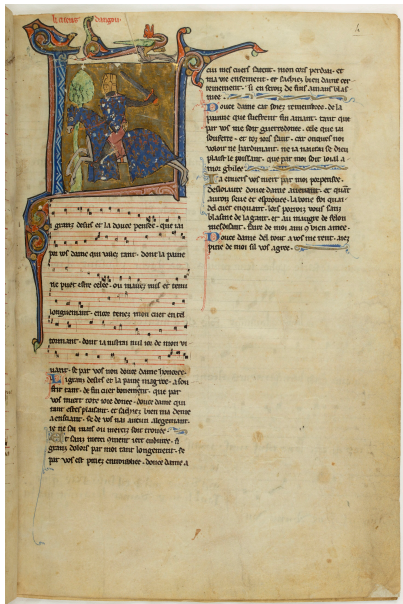 li cuens dangou
granz desirs et la douce pensee · que iai
por vos dame qui valez tant · dont la paine
ne puet estre celee · ou mauez mis et tenu
longuement · encor tenez mon cuer en tel
tormant · dont ia nus ne de mon vi
vant · se par vos non douce dame honoree
Li granz desirs et la paine · a sou
frir tant de fin cuer bonement · que par
vos soit ioie donee · douce dame qui
tant estes plaisant · et sachiez bien ma dame
a enscient · se de vos nai aucun alegement
ie ne sai mais ou merci soit trouee
Et sanz merci · si
granz dolors par moi tant longement · se
par vos est pitiez entroubliee · douce dame a
cui mes cuers satent · mon cors perdrai · et
ma vie ensement · et sachiez bien dame cer
tenement · si en serez de fins amans blas
mee
Douce dame car soiez remembree · de la
painne que sueffrent fin amant · tant que
par vos me soit guerredonee · cele que iai
soufferte · et toz iors sant · car onques not
voloir ne hardimant · ne ia naurai se dieu
plaist le poissant · que par moi soit loial a
mor
La cuers vos
desloiautez douce dame auenant · et quant
aurois seue et esprouee · la bone foi quai
del cuer enoiant · lors porroiz vous sanz
blasme de la gent · et au maugre de felon
mesdisant · faire de moi ami o bien amee
Douce dame del tout a vos me rent · aiez
pitie de moi sil vos agree